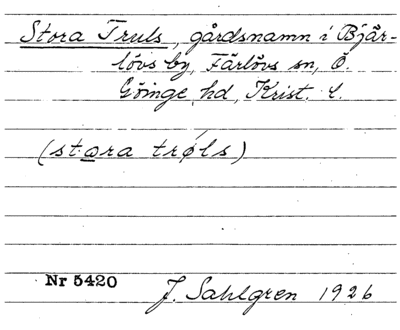 Stora Truls, gårdsnamn i Bjär-
lövs by, Färlövs sn, Ö.
Göinge hd, Krist. l.
(stωra trøls)
Nr 5420
J. Sahlgren 1926